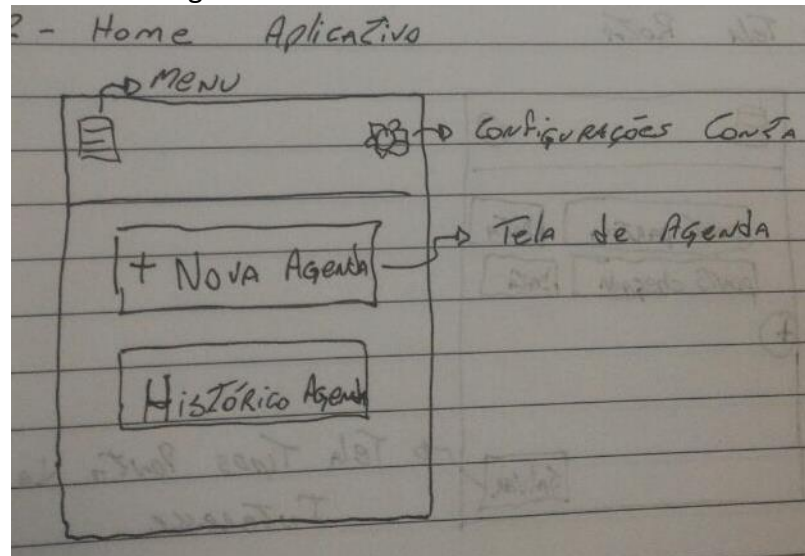 2 - Home Aplicativo
Menu
Configurações Conta
+ Nova Agenda
Tela de Agenda
Histórico Agenda